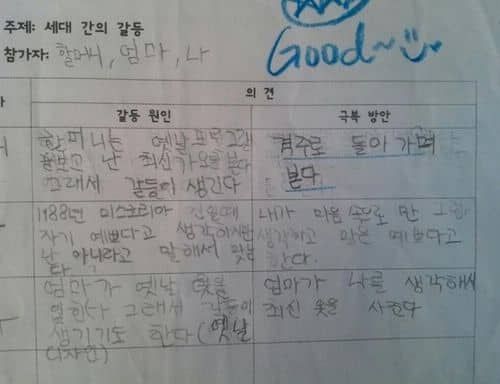 주제: 세대 간의 갈등
Good~
참가자: 할머니, 엄마, 나
의 견
갈등 원인
극복 방안
할머니는 옛날 프로그램
을보고 난 최신가요을 본다
그래서 갈등이 생긴다
겨주로 돌이 가며
본다.
1988년 미스코리아
자기 예쁘다고 생각이지만
난 아니라고 말해서
다.
내가 마음 속으로 만
생각하고 말은 예쁘다고
한다.
엄마가 옛날 옷을
그래서 갈등이
생기기도 한다(옛날
디자인)
엄마가 나를 생각해서
최신 옷을 사준다